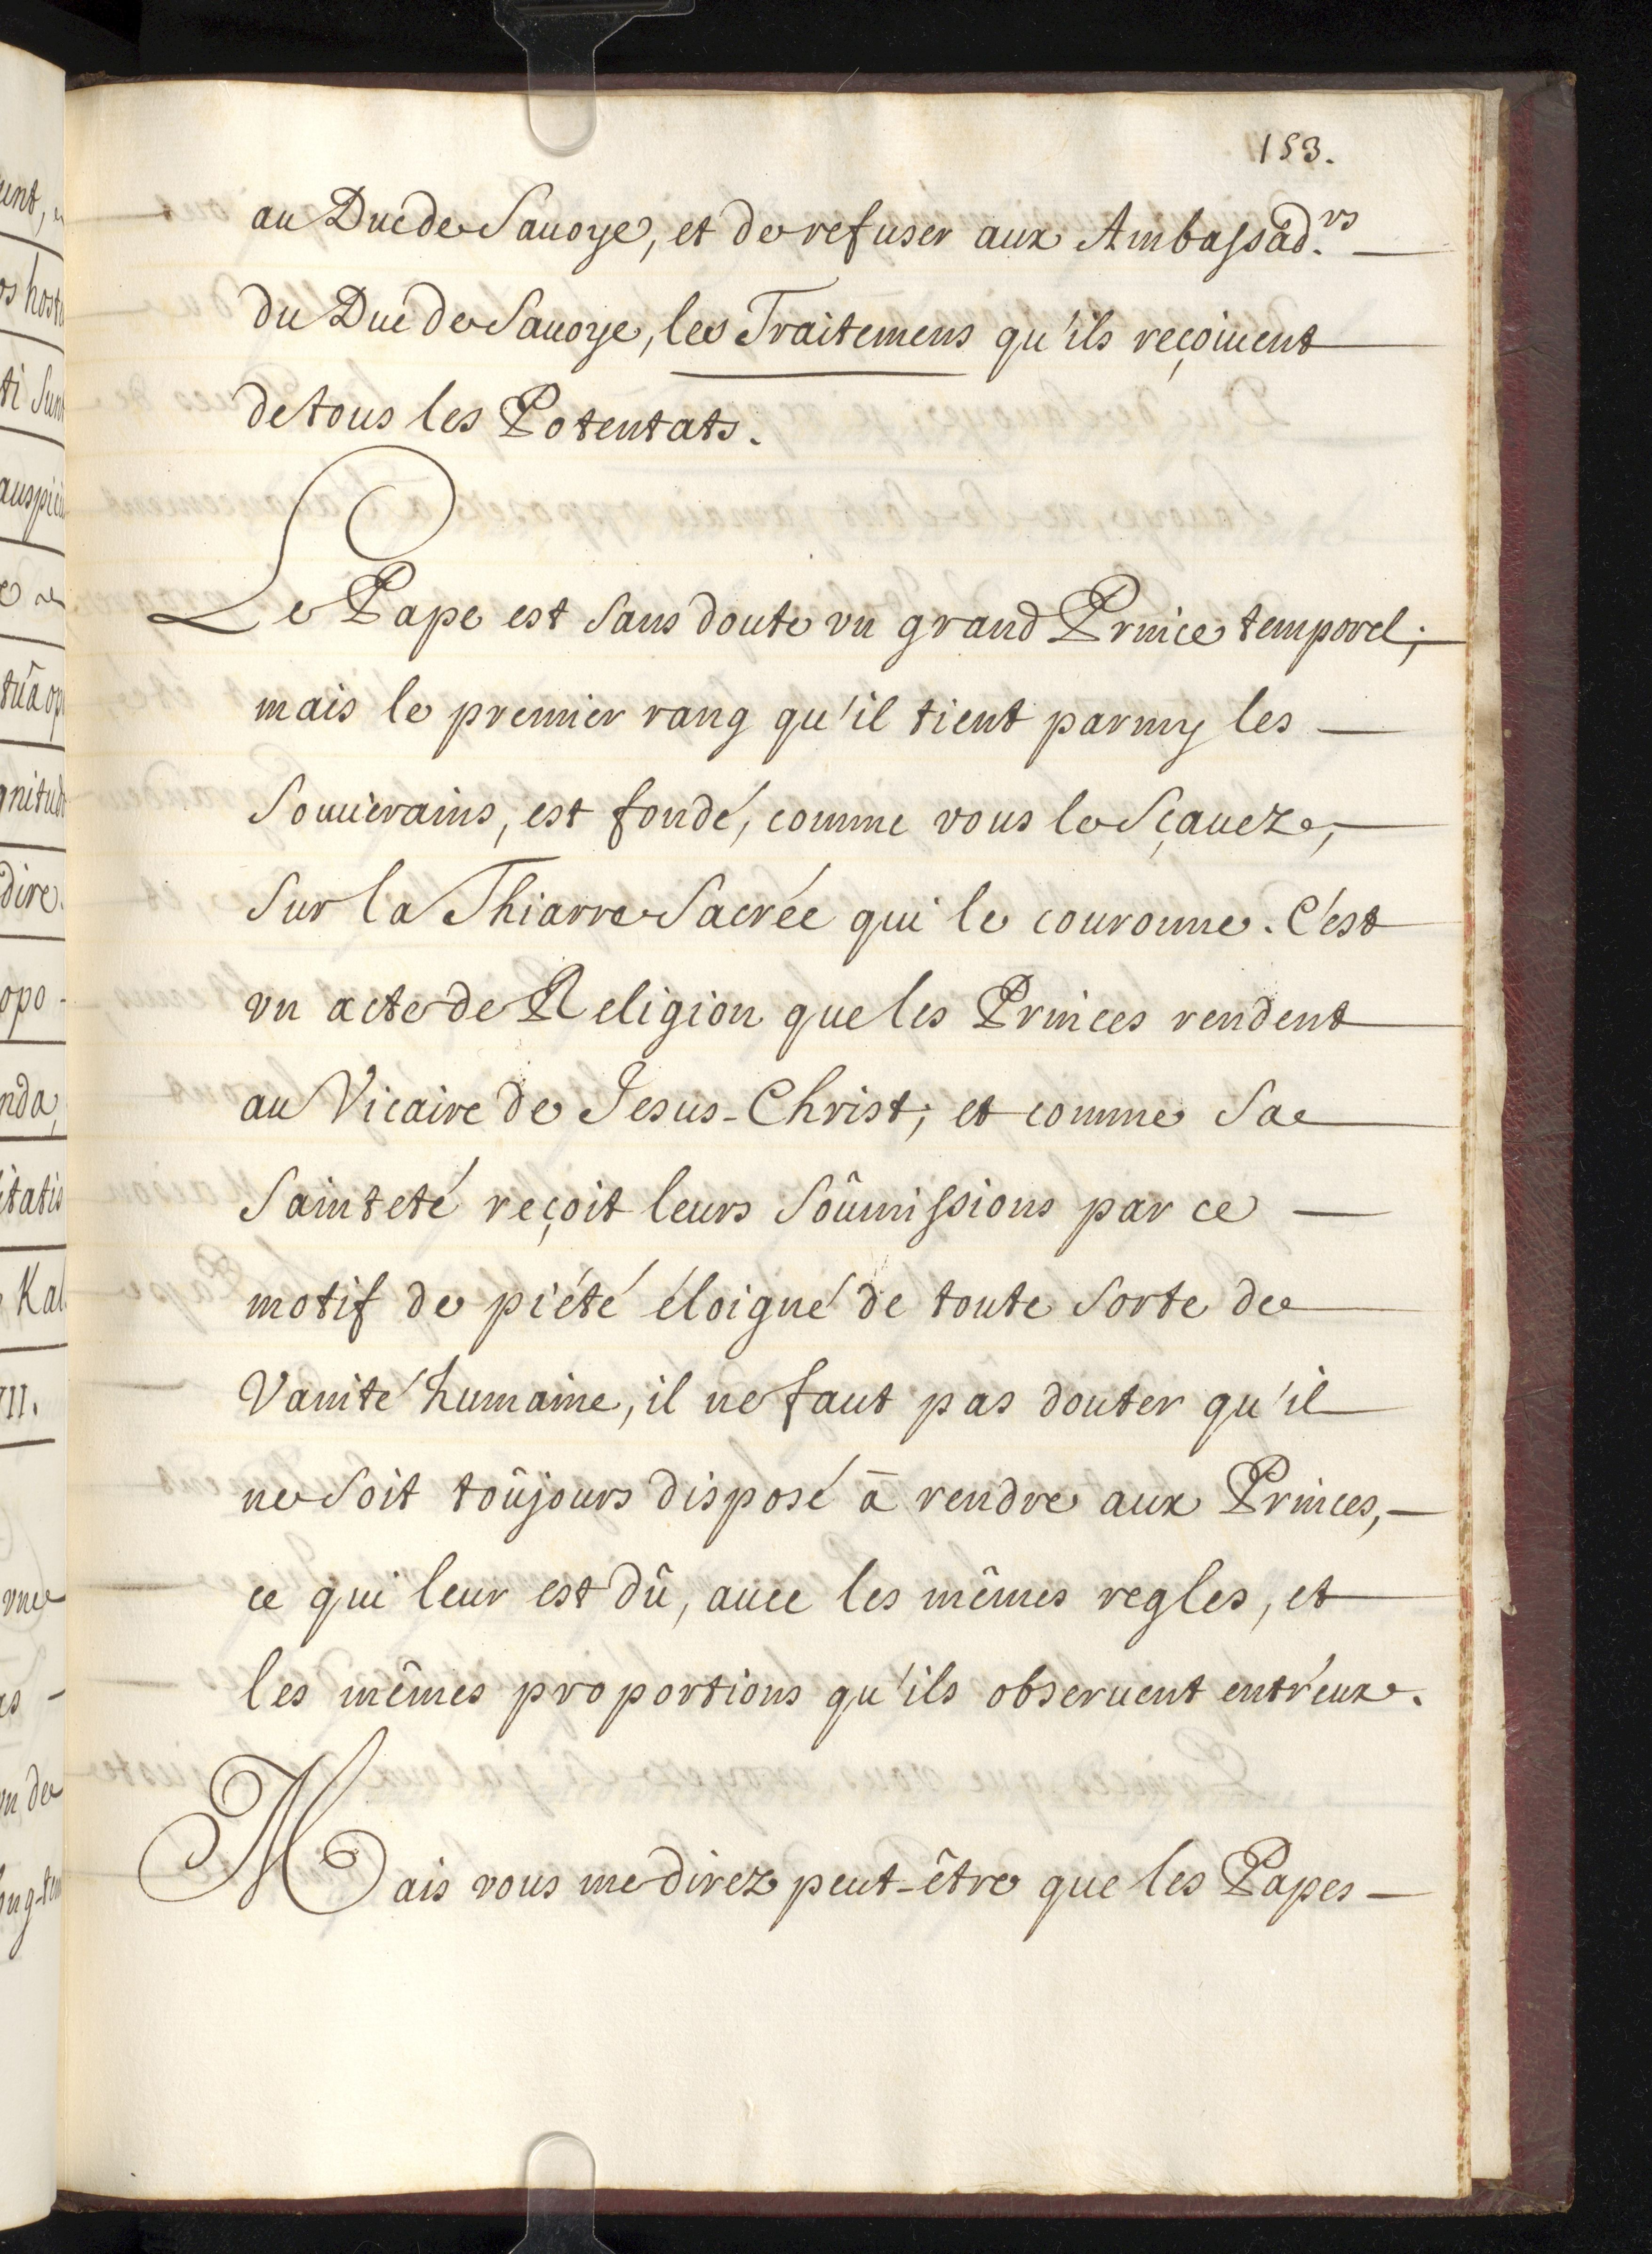 153.
au Duc de Sauoye, et de refuser aux Ambassad.rs
du Duc de Sauoye, les Traitemens qu'ils reçoiuent
de tous les Potentats.
Le Pape est sans doute vn grand Prince temporel;
mais le premier rang qu'il tient parmy les
Souuerains, est fondé, comme vous le Sçauez,
Sur la Thiarre Sacrée qui le couronne. C'est
vn acte de Religion que les Princes rendent
au Vicaire de Jesus-Christ; et comme Sa
Sainteté reçoit leurs Soûmissions par ce
motif de piété éloigné de toute Sorte de
Vanité humaine, il ne faut pas douter qu'il
ne Soit toûjours disposé à rendre aux Princes,
ce qui leur est dû, auec les mêmes regles, et
les mêmes proportions qu'ils obseruent entr'eux.
Mais vous me direz peut-être que les Papes